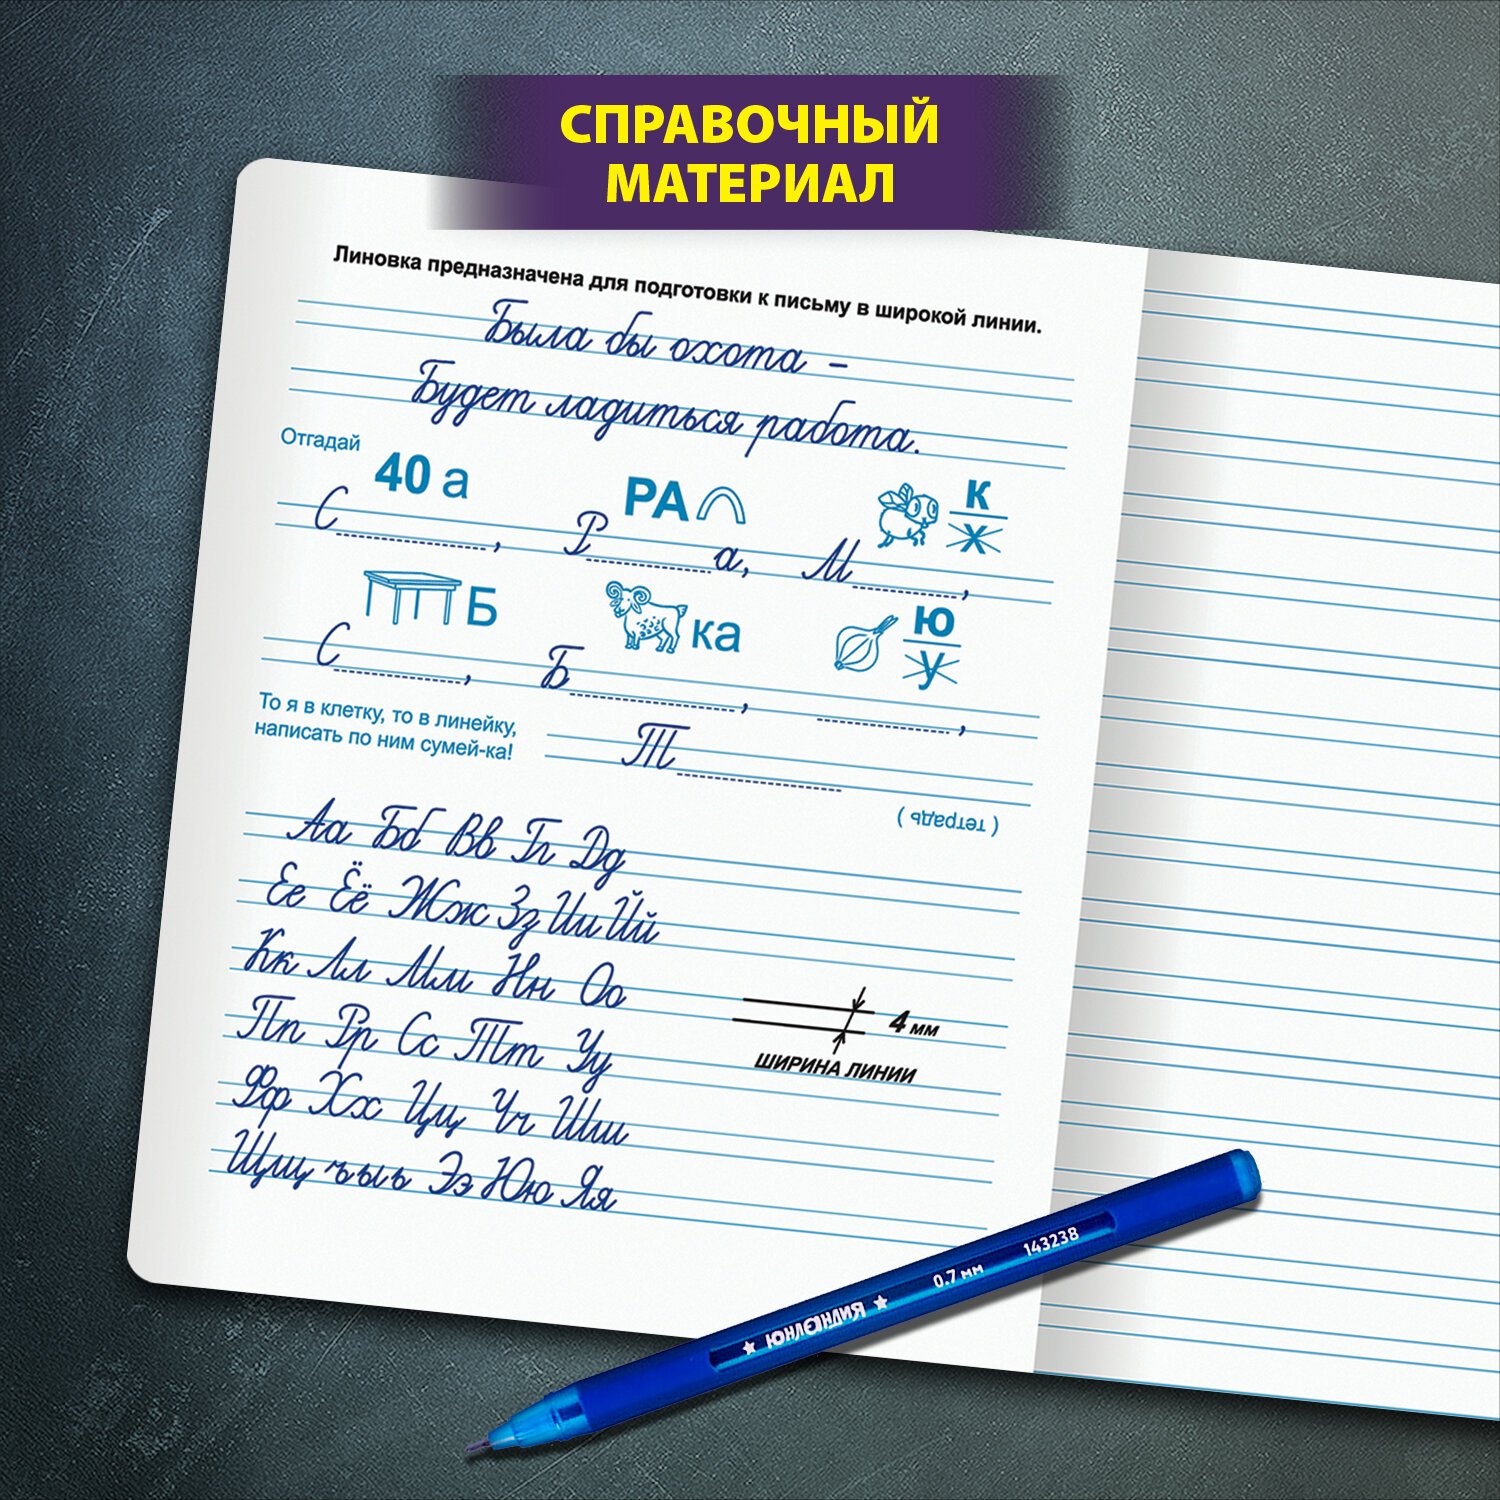 СПРАВОЧНЫЙ
МАТЕРИАЛ
Линовка предназначена для подготовки к письму в широкой линии.
Была бы охота –
Будет ладиться работа.
Отгадай
40 а РА К Ж
С , Р а, М ,
Б ка Ю У
С , Б , ,
То я в клетку, то в линейку,
написать по ним сумей-ка!
Т
( тетрадь )
Аа Бб Вв Гг Дд
Ее Ёё Жж Зз Ии Йй
Кк Лл Мм Нн Оо
Пп Рр Сс Тт Уу
Фф Хх Цц Чч Шш
Щщ ъ ы ь Ээ Юю Яя
4 мм
ШИРИНА ЛИНИИ
ЮНЛАНДИЯ 0.7 мм 143238